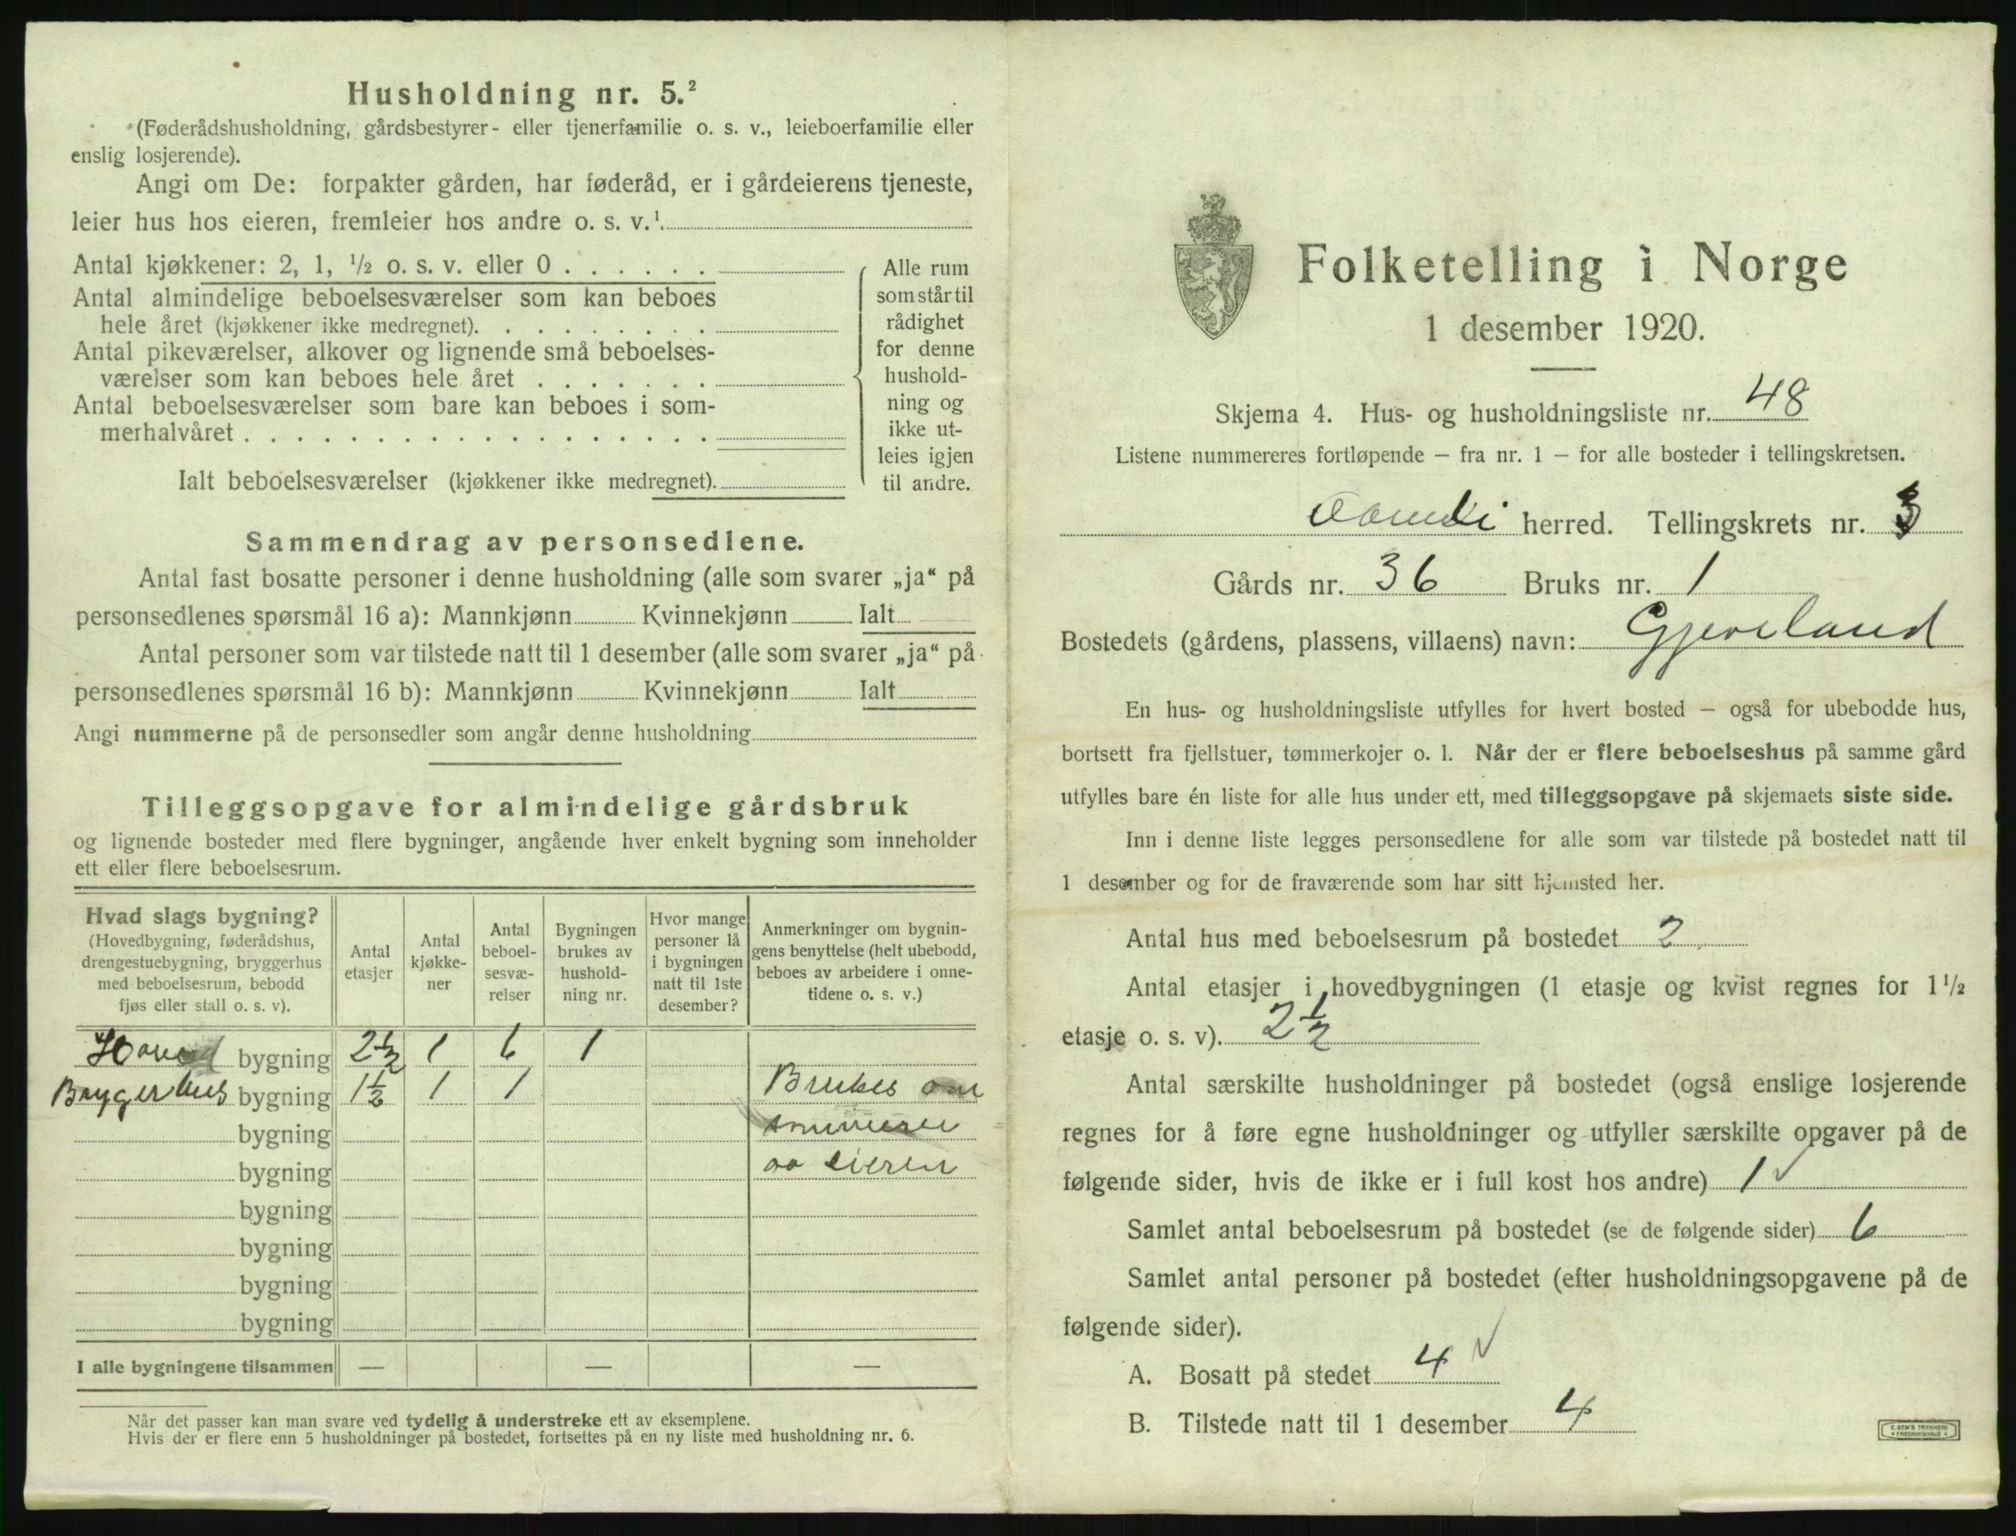 Husholdning nr. 5.²
(Føderådshusholdning, gårdsbestyrer- eller tjenerfamilie o. s. v., leieboerfamilie eller
enslig losjerende).
Angi om De: forpakter gården, har føderåd, er i gårdeierens tjeneste,
leier hus hos eieren, fremleier hos andre o. s. v.¹.
Antal kjøkkener: 2, 1, ½ o. s. v. eller 0 . . . . . .
Antal almindelige beboelsesværelser som kan beboes
hele året (kjøkkener ikke medregnet). . . . . . . . .
Antal pikeværelser, alkover og lignende små beboelses-
værelser som kan beboes hele året . . . . . . .
Antal beboelsesværelser som bare kan beboes i som-
merhalvåret . . . . . . . . . . . . . . . . . .
Ialt beboelsesværelser (kjøkkener ikke medregnet).
Alle rum
som står til
rådighet
for denne
hushold-
ning og
ikke ut-
leies igjen
til andre.
Sammendrag av personsedlene.
Antal fast bosatte personer i denne husholdning (alle som svarer „ja“ på
personsedlenes spørsmål 16 a): Mannkjønn Kvinnekjønn Ialt
Antal personer som var tilstede natt til 1 desember (alle som svarer „ja“ på
personsedlenes spørsmål 16 b): Mannkjønn Kvinnekjønn Ialt
Angi nummerne på de personsedler som angår denne husholdning
Tilleggsopgave for almindelige gårdsbruk
og lignende bosteder med flere bygninger, angående hver enkelt bygning som inneholder
ett eller flere beboelsesrum.
Hvad slags bygning?
(Hovedbygning, føderådshus,
drengestuebygning, bryggerhus
med beboelsesrum, bebodd
fjøs eller stall o. s. v).
Antal
etasjer
Antal
kjøkke-
ner
Antal
beboel-
sesvæ-
relser
Bygningen
brukes av
hushold-
ning nr.
Hvor mange
personer lå
i bygningen
natt til 1ste
desember?
Anmerkninger om bygnin-
gens benyttelse (helt ubebodd,
beboes av arbeidere i onne-
tidene o. s. v.)
Hoved bygning 2½ 1 6 1
Brygerhus bygning 1½ 1 1 Brukes om
bygning sommeren
bygning av eieren
bygning
bygning
bygning
bygning
I alle bygningene tilsammen — — —
Når det passer kan man svare ved tydelig å understreke ett av eksemplene.
Hvis der er flere enn 5 husholdninger på bostedet, fortsettes på en ny liste med husholdning nr. 6.
Folketelling i Norge
1 desember 1920.
Skjema 4. Hus- og husholdningsliste nr. 48
Listene nummereres fortløpende — fra nr. 1 — for alle bosteder i tellingskretsen.
herred. Tellingskrets nr. 3
Gårds nr. 36 Bruks nr. 1
Bostedets (gårdens, plassens, villaens) navn: Gjeveland
En hus- og husholdningsliste utfylles for hvert bosted — også for ubebodde hus,
bortsett fra fjellstuer, tømmerkojer o. l. Når der er flere beboelseshus på samme gård
utfylles bare én liste for alle hus under ett, med tilleggsopgave på skjemaets siste side.
Inn i denne liste legges personsedlene for alle som var tilstede på bostedet natt til
1 desember og for de fraværende som har sitt hjemsted her.
Antal hus med beboelsesrum på bostedet 2
Antal etasjer i hovedbygningen (1 etasje og kvist regnes for 1½
etasje o. s. v). 2½
Antal særskilte husholdninger på bostedet (også enslige losjerende
regnes for å føre egne husholdninger og utfyller særskilte opgaver på de
følgende sider, hvis de ikke er i full kost hos andre) 1 ✓
Samlet antal beboelsesrum på bostedet (se de følgende sider) 6
Samlet antal personer på bostedet (efter husholdningsopgavene på de
følgende sider).
A. Bosatt på stedet 4 ✓
B. Tilstede natt til 1 desember 4
E. SEM'S TRYKKERI
FREDRIKSHALD